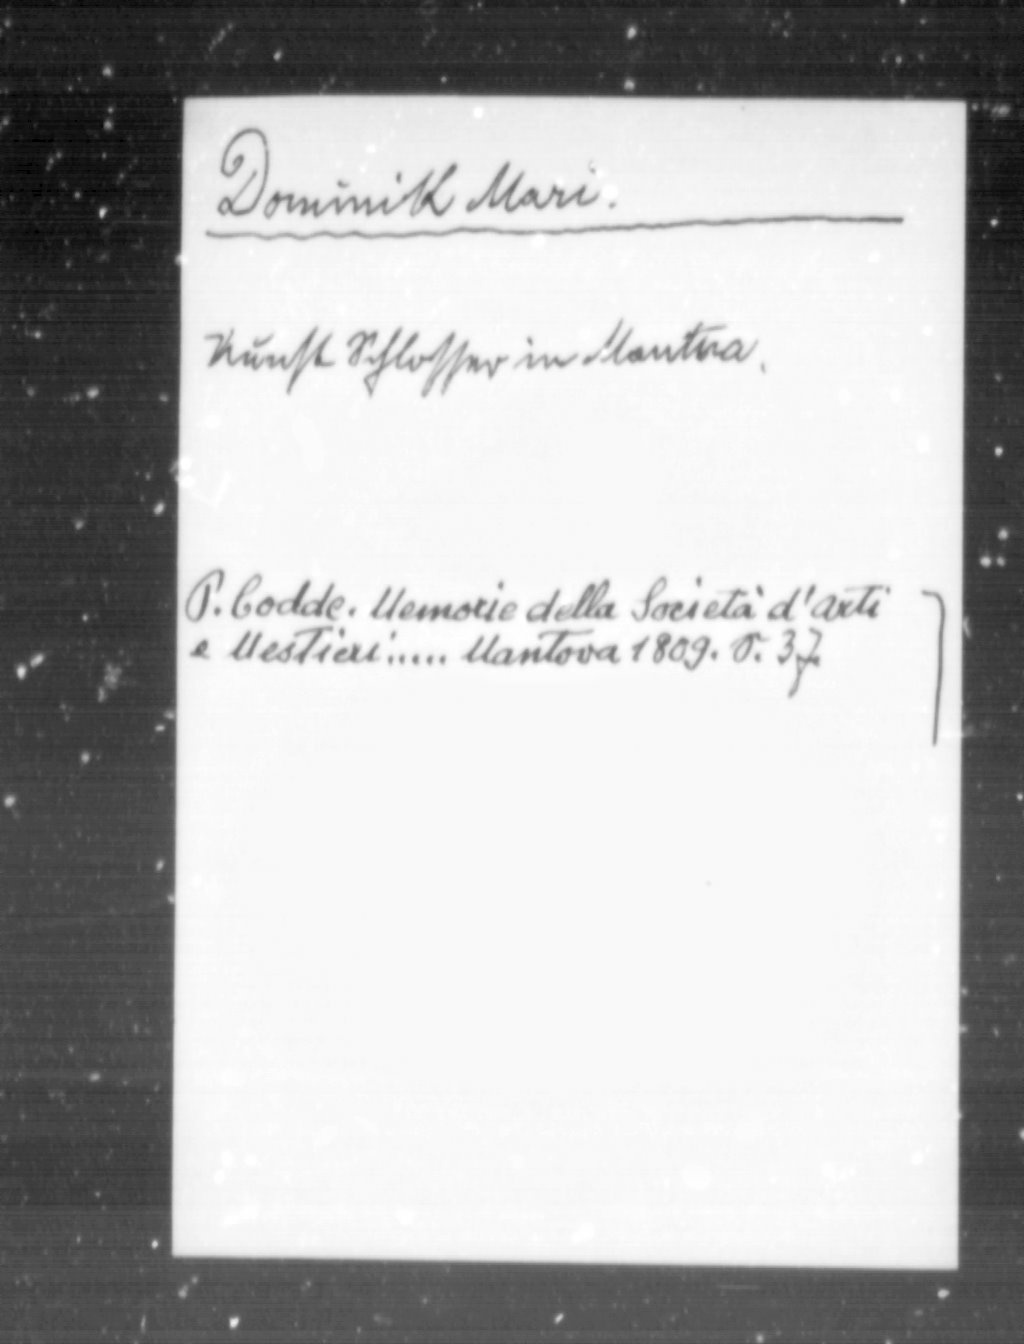 Dominik Mari.
Kunst Schlosser in Mantua.
P. Codde. Memorie della Società d'Arti
e Mestieri..... Mantova 1809. P. 37